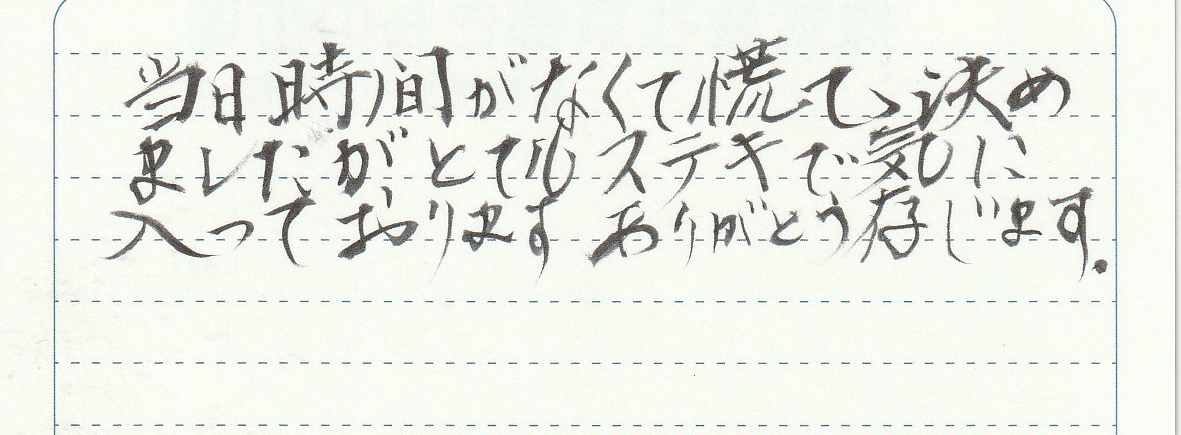 当日時間がなくて慌てゝ決め
ましたがとてもステキで気に
入っております ありがとう存じます.